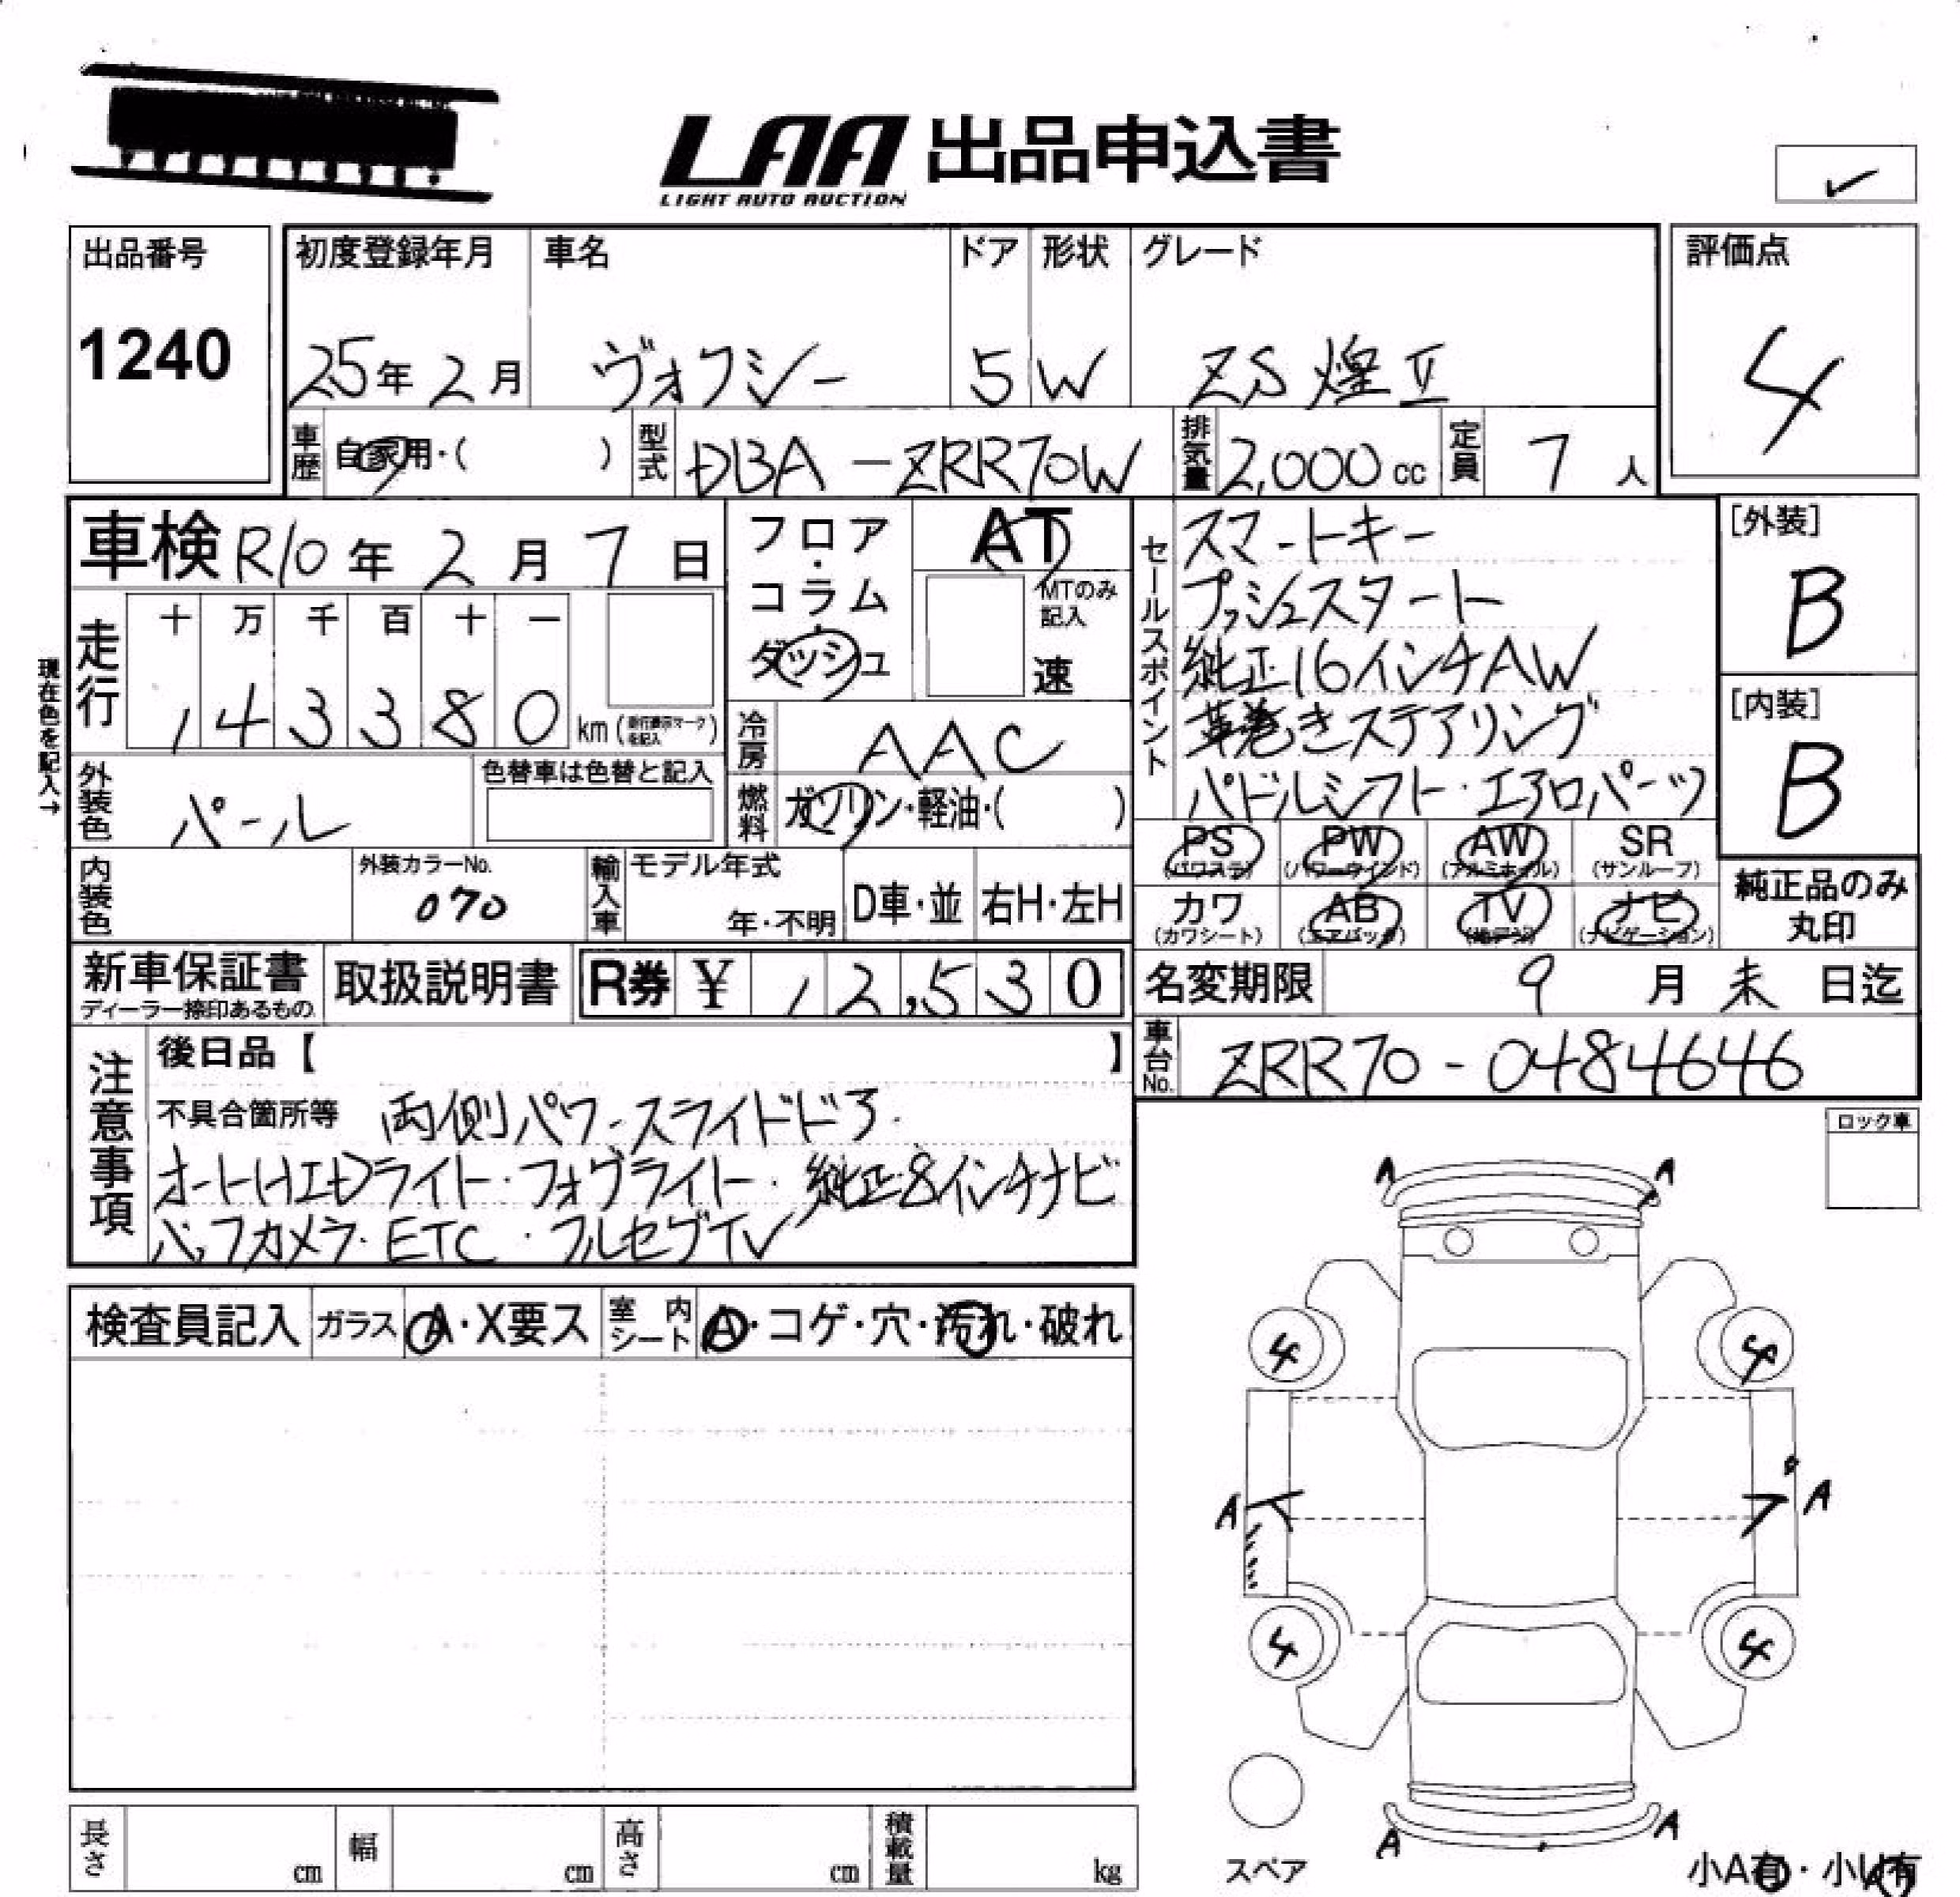 LAA 出品申込書
LIGHT AUTO AUCTION
✓
出品番号 初度登録年月 車名 ドア 形状 グレード 評価点
1240 25年 2月 ヴォクシー 5 W ZS 煌Ⅱ 4
車歴 自家用・( ) 型式 DBA-ZRR70W 排気量 2,000cc 定員 7人
車検 R10年 2月 7日
フロア・コラム・ダッシュ
AT
MTのみ記入
速
セールスポイント
スマートキー
プッシュスタート
純正16インチAW
革巻きステアリング
パドルシフト・エアロパーツ
[外装]
B
[内装]
B
現在色を記入→
走行 十 万 千 百 十 一
1 4 3 3 8 0 km
冷房 AAC
外装色 パール 色替車は色替と記入
燃料 ガソリン・軽油・( )
PS (パワステ) PW (パワーウインド) AW (アルミホイル) SR (サンルーフ)
カワ (カワシート) AB (エアバック) TV (地デジ) ナビ (ナビゲーション)
純正品のみ
丸印
内装色 外装カラーNo. 070 輸入車 モデル年式 年・不明 D車・並 右H・左H
新車保証書 取扱説明書 R券 ¥ 12,530
ディーラー捺印あるもの
名変期限 9月 末日迄
車台No. ZRR70-0484646
注意事項
後日品【 】
不具合箇所等 両側パワースライドドア・
オートHIDライト・フォグライト・純正8インチナビ
バックカメラ・ETC・フルセグTV
ロック車
A A
検査員記入 ガラス A・X要ス 室内シート A・コゲ・穴・汚れ・破れ
4 4
A A
4 4
A A
スペア
小A有・小U有
長さ cm 幅 cm 高さ cm 積載量 kg